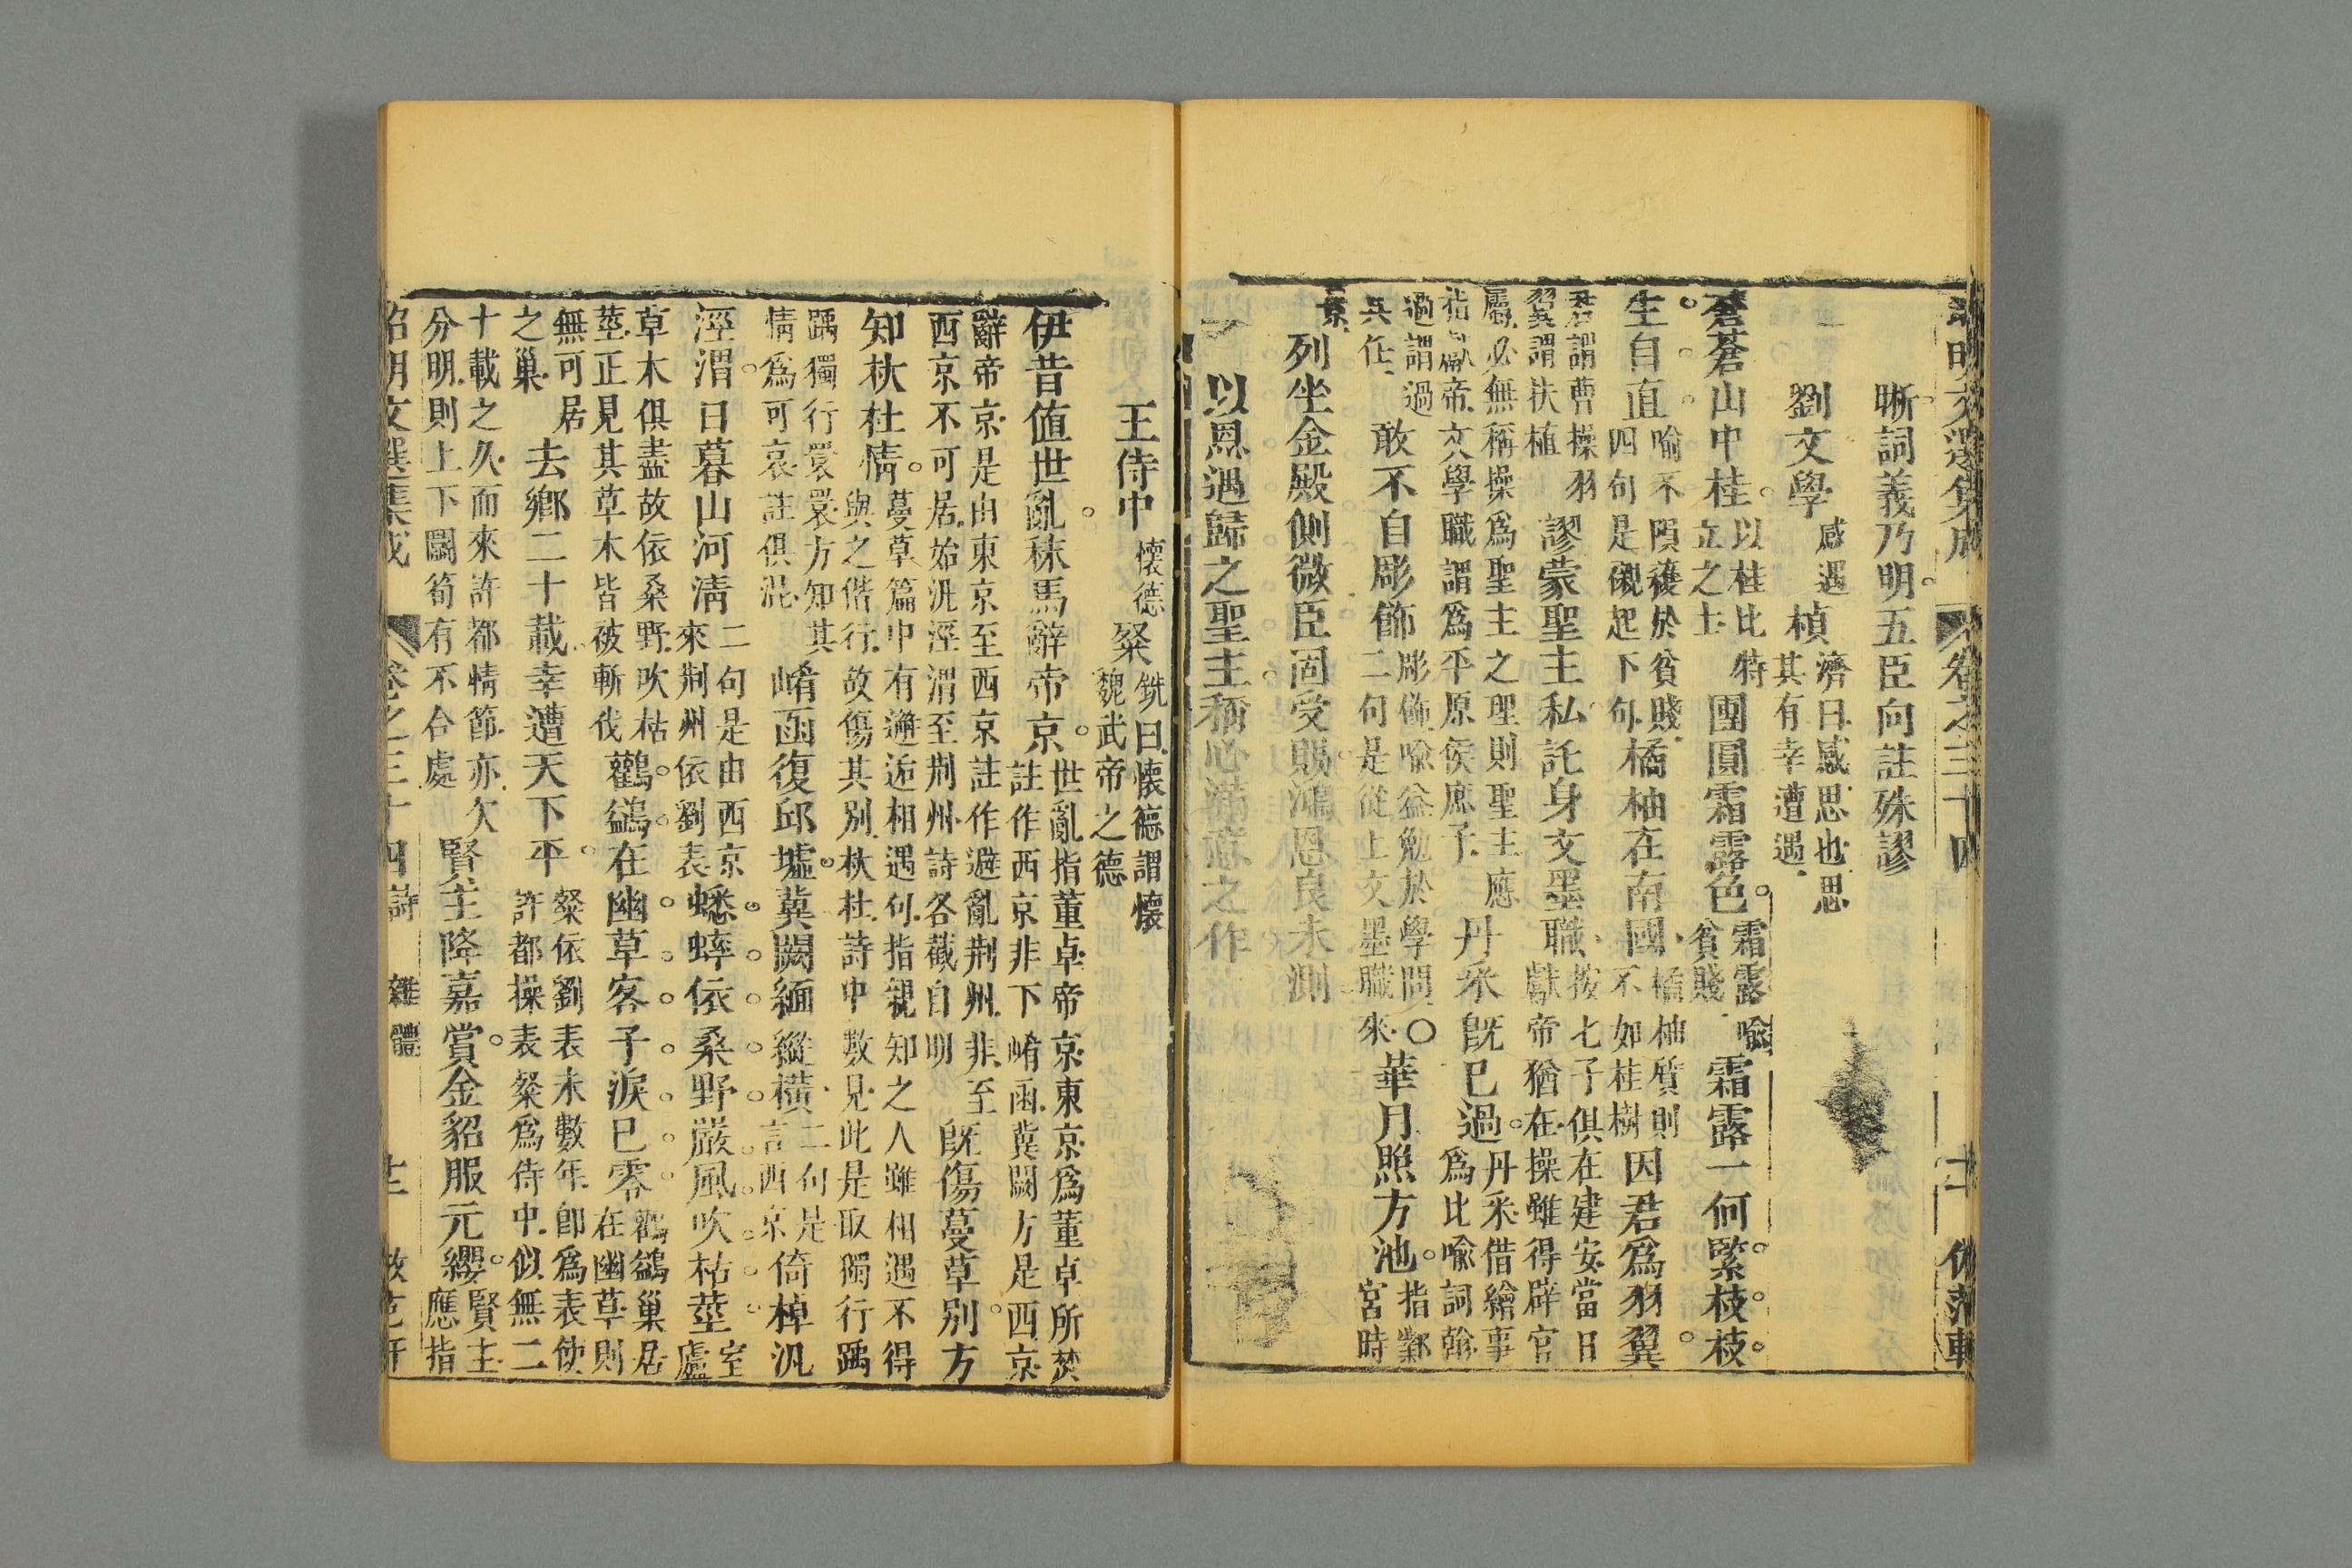 昭明文選集成 卷之三十四 倣范軒
晰詞義乃明五臣向註殊謬
劉文學 感遇 楨 濟曰感思也思其有幸遭遇
蒼蒼山中桂 以桂比特立之士 團圓霜露色 霜露喻貧賤 霜露一何緊枝枝
生自直 喻不隕穫於貧賤四句是襯起下句 橘柚在南國 橘柚質則不如桂樹 因君爲羽翼
君謂曹操羽翼謂扶植 謬蒙聖主私託身文墨職 按七子俱在建安當日獻帝猶在操雖得辟官
屬必無稱操爲聖主之理則聖主應指獻帝文學職謂爲平原侯庶子 丹采旣已過 丹采借繪事爲比喻詞翰
過謂過其任 敢不自彫飾 彫飾喻益勉於學問○二句是從上文墨職來 華月照方池 指鄴宮時
景 列坐金殿側微臣固受賜鴻恩良未測
以恩遇歸之聖主稱心滿意之作
王侍中 懷德 粲 銑曰懷德謂懷魏武帝之德
伊昔值世亂秣馬辭帝京 世亂指董卓帝京東京爲董卓所焚註作西京非下崤函冀闕方是西京
辭帝京是由東京至西京註作避亂荆州非至西京不可居始汎涇渭至荆州詩各截自明 旣傷蔓草別方
知杕杜情 蔓草篇中有邂逅相遇句指親知之人雖相遇不得與之偕行故傷其別杕杜詩中數見此是取獨行踽
踽獨行睘睘方知其情爲可哀註俱混 崤函復邱墟冀闕緬縱橫 二句是言西京 倚棹汎
涇渭日暮山河清 二句是由西京來荆州依劉表 蟋蟀依桑野嚴風吹枯莖 室廬
草木俱盡故依桑野吹枯莖正見其草木皆被斬伐 鸛鷁在幽草客子淚已零 鸛鷁巢居在幽草則
無可居之巢 去鄉二十載幸遭天下平 粲依劉表未數年卽爲表使許都操表粲爲侍中似無二
十載之久而來許都情節亦欠分明則上下鬬筍有不合處 賢主降嘉賞金貂服元纓 賢主應指
昭明文選集成 卷之三十四 詩 雜體 倣范軒